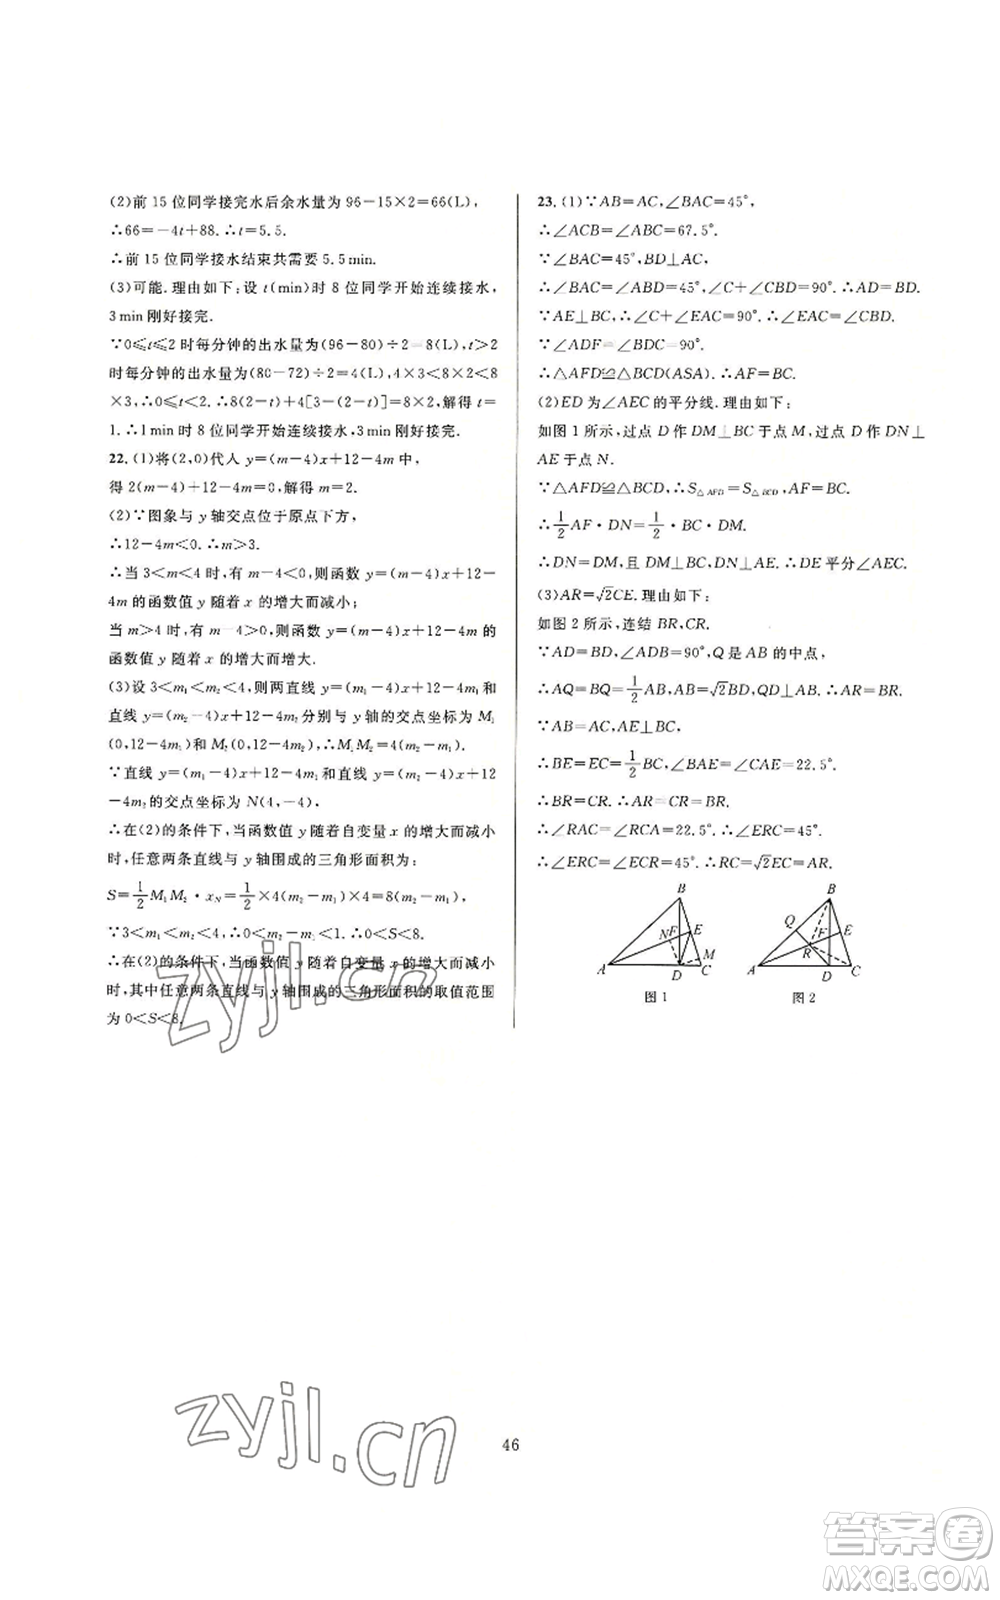 (2)前 15 位同学接完水后余水量为 96-15×2=66(L),
∴66=-4t+88.∴t=5.5.
∴前 15 位同学接水结束共需要 5.5min.
(3)可能.理由如下:设 t(min)时 8 位同学开始连续接水,
3min 刚好接完.
∵0⩽t⩽2 时每分钟的出水量为(96-80)÷2=8(L),t>2
时每分钟的出水量为(80-72)÷2=4(L),4×3<8×2<8
×3,∴0⩽t<2.∴8(2-t)+4[3-(2-t)]=8×2,解得 t=
1.∴1min 时 8 位同学开始连续接水,3min 刚好接完.
22.(1)将(2,0)代人 y=(m-4)x+12-4m 中,
得 2(m-4)+12-4m=0,解得 m=2.
(2)∵图象与 y 轴交点位于原点下方,
∴12-4m<0.∴m>3.
∴当 3<m<4 时,有 m-4<0,则函数 y=(m-4)x+12-
4m 的函数值 y 随着 x 的增大而减小;
当 m>4 时,有 m-4>0,则函数 y=(m-4)x+12-4m 的
函数值 y 随着 x 的增大而增大.
(3)设 3<m₁<m₂<4,则两直线 y=(m₁-4)x+12-4m₁和
直线 y=(m₂-4)x+12-4m₂分别与 y 轴的交点坐标为 M₁
(0,12-4m₁)和 M₂(0,12-4m₂),∴M₁M₂=4(m₂-m₁).
∵直线 y=(m₁-4)x+12-4m₁和直线 y=(m₂-4)x+12
-4m₂的交点坐标为 N(4,-4),
∴在(2)的条件下,当函数值 y 随着自变量 x 的增大而减小
时,任意两条直线与 y 轴围成的三角形面积为:
S=1/2 M₁M₂·x_N=1/2×4(m₂-m₁)×4=8(m₂-m₁),
∵3<m₁<m₂<4,∴0<m₂-m₁<1.∴0<S<8.
∴在(2)的条件下,当函数值 y 随着自变量 x 的增大而减小
时,其中任意两条直线与 y 轴围成的三角形面积的取值范围
为 0<S<8.
23.(1)∵AB=AC,∠BAC=45°,
∴∠ACB=∠ABC=67.5°.
∵∠BAC=45°,BD⊥AC,
∴∠BAC=∠ABD=45°,∠C+∠CBD=90°.∴AD=BD.
∵AE⊥BC,∴∠C+∠EAC=90°.∴∠EAC=∠CBD.
∵∠ADF=∠BDC=90°.
∴△AFD≌△BCD(ASA).∴AF=BC.
(2)ED 为∠AEC 的平分线.理由如下:
如图 1 所示,过点 D 作 DM⊥BC 于点 M,过点 D 作 DN⊥
AE 于点 N.
∵△AFD≌△BCD,∴S△AFD=S△BCD,AF=BC.
∴1/2AF·DN=1/2·BC·DM.
∴DN=DM,且 DM⊥BC,DN⊥AE.∴DE平分∠AEC.
(3)AR=√2CE.理由如下:
如图 2 所示,连结 BR,CR.
∵AD=BD,∠ADB=90°,Q 是 AB 的中点,
∴AQ=BQ=1/2AB,AB=√2BD,QD⊥AB.∴AR=BR.
∵AB=AC,AE⊥BC,
∴BE=EC=1/2BC,∠BAE=∠CAE=22.5°.
∴BR=CR.∴AR=CR=BR.
∴∠RAC=∠RCA=22.5°.∴∠ERC=45°.
∴∠ERC=∠ECR=45°.∴RC=√2EC=AR.
B
N F E
M
A D C
图 1
B
Q
F E
R
A D C
图 2
zyjl.cn
zyjl.cn
46
答案卷
MXQE.COM